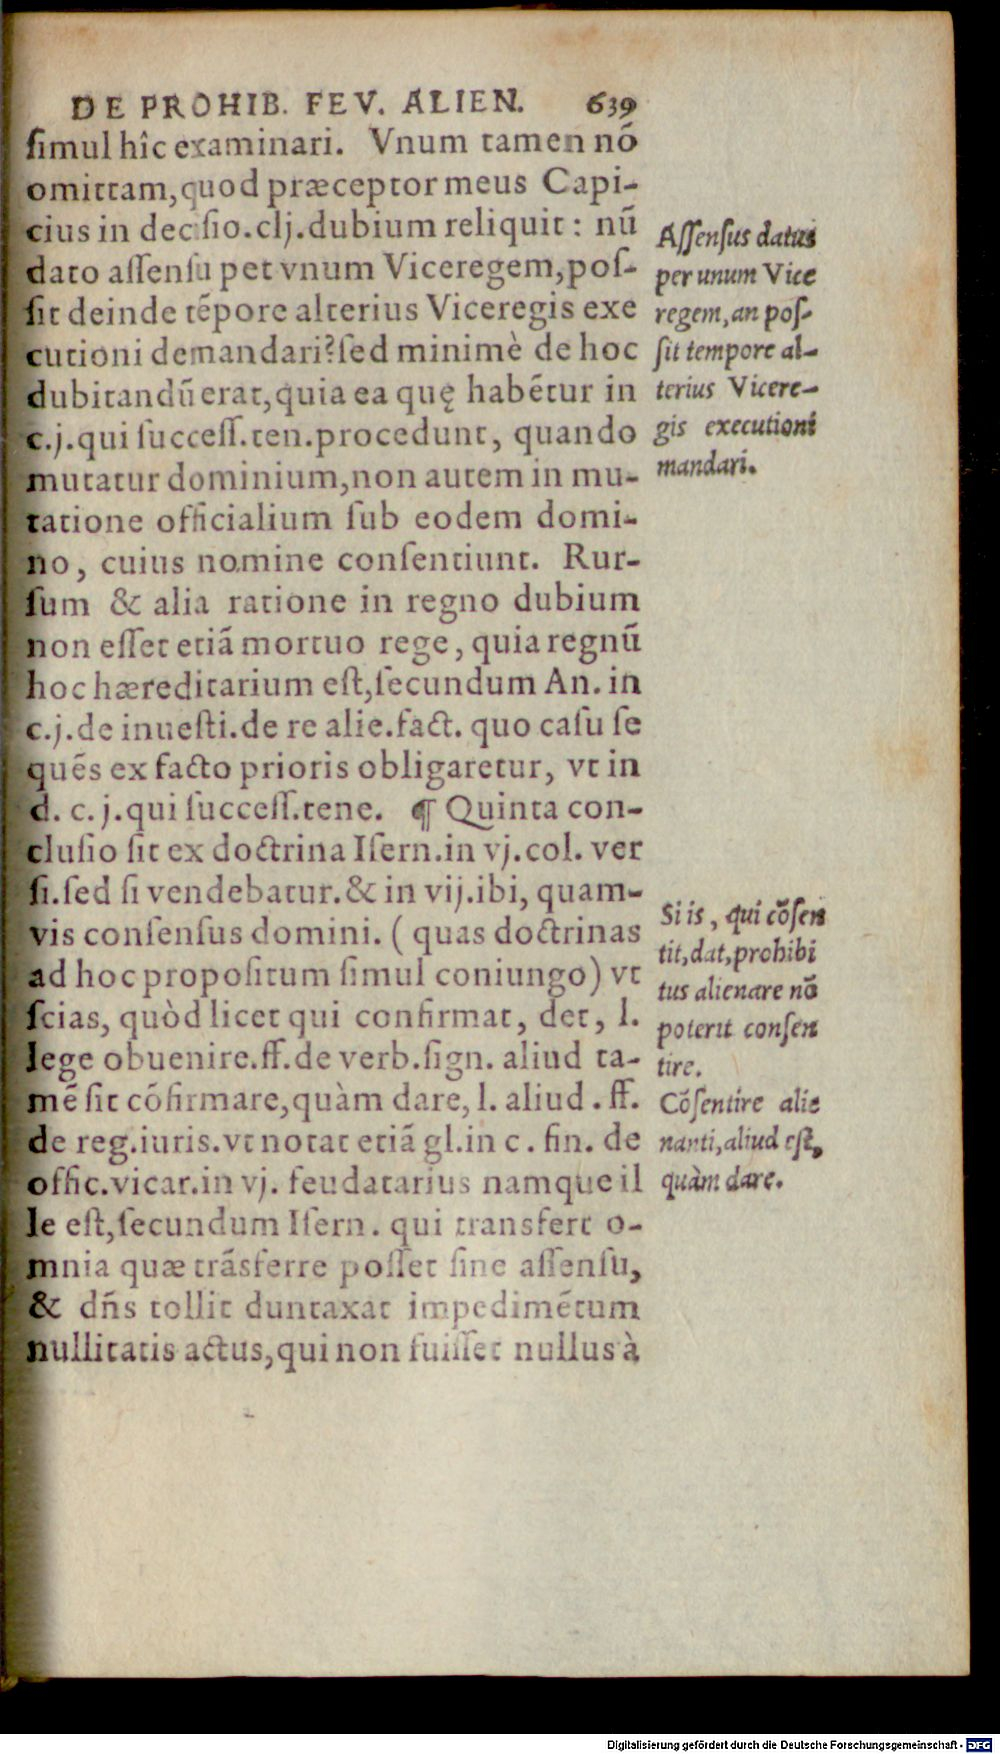 DE PROHIB. FEV. ALIEN. 639
ſimul hîc examinari. Vnum tamen nõ
omittam,quod præceptor meus Capi-
cius in deciſio.clj.dubium reliquit: nũ
dato aſſenſu pet vnum Viceregem,poſ-
ſit deinde tẽpore alterius Viceregis exe
cutioni demandari?ſed minimè de hoc
dubitandũ erat,quia ea quę habẽtur in
c.j.qui ſucceſſ.ten.procedunt, quando
mutatur dominium,non autem in mu-
tatione officialium ſub eodem domi-
no, cuius nomine conſentiunt. Rur-
ſum & alia ratione in regno dubium
non eſſet etiã mortuo rege, quia regnũ
hoc hæreditarium eſt,ſecundum An. in
c.j.de inueſti.de re alie.fact. quo caſu ſe
quẽs ex facto prioris obligaretur, vt in
d. c.j.qui ſucceſſ.tene. ¶ Quinta con-
cluſio ſit ex doctrina Iſern.in vj.col. ver
ſi.ſed ſi vendebatur.& in vij.ibi, quam-
vis conſenſus domini. ( quas doctrinas
ad hoc propoſitum ſimul coniungo) vt
ſcias, quòd licet qui confirmat, det, l.
lege obuenire.ff.de verb.ſign. aliud ta-
mẽ ſit cõfirmare,quàm dare, l. aliud . ff.
de reg.iuris.vt notat etiã gl.in c. fin. de
offic.vicar.in vj. feudatarius namque il
le eſt,ſecundum Iſern. qui transfert o-
mnia quæ trãsferre poſſet ſine aſſenſu,
& dñs tollit duntaxat impedimẽtum
nullitatis actus,qui non fuiſſet nullus à
Aſſenſus datus
per unum Vice
regem,an poſ-
ſit tempore al-
terius Vicere-
gis executioni
mandari.
Si is, qui cõſen
tit,dat,prohibi
tus alienare nõ
poterit conſen
tire.
Cõſentire alie
nanti,aliud eſt,
quàm dare.
Digitalisierung gefördert durch die Deutsche Forschungsgemeinschaft - DFG